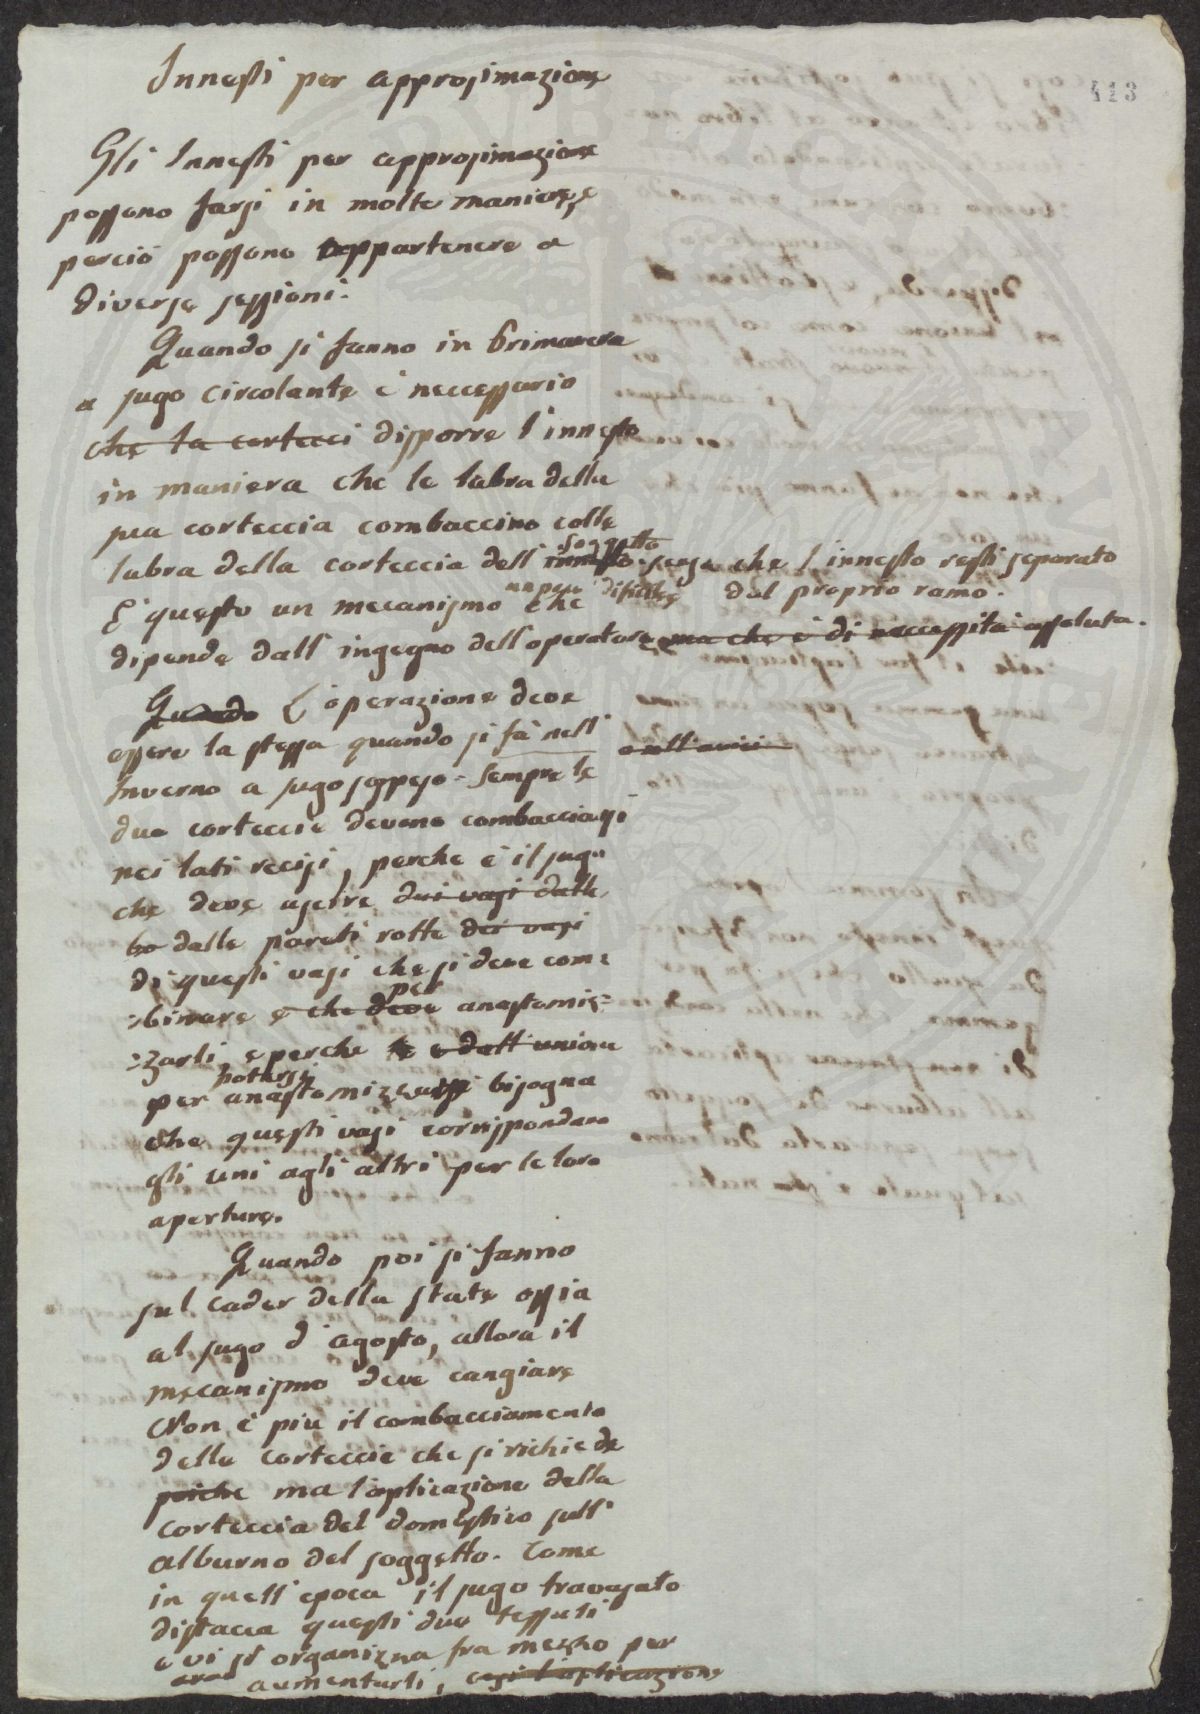 413
Innesti per approsimazione
Gli Innesti per approsimazione
possono farsi in molte maniere, e
perciò possono appartenere a
diverse sessioni.
Quando si fanno in Primavera
a sugo circolante è neccessario
che la cortecci disporre l'innesto
in maniera che le labra della
sua corteccia combaccino colle
soggetto
labra della corteccia dell' innesto senza che l'innesto resti separato
dal proprio ramo.
un poco dificile
E' questo un mecanismo che
dipende dall' ingegno dell'operatore ma che è di neccessità assoluta.
Quando L'operazione deve
essere la stessa quando si fà nell'
Inverno a sugo sospeso. Sempre le
due corteccie devono combacciarsi
nei lati recisi, perche è il sugo
che deve uscire dai vasi dalle
bo dalle pareti rotte dei vasi
di questi vasi che si deve com=
per
=binare e che deve anastomiz=
=zarli, e perche le e dall'unione
potersi
per anastomizzarsi bisogna
che questi vasi corrispondano
gli uni agli altri per le loro
aperture.
Quando poi si fanno
sul cader della state ossia
al sugo d'agosto, allora il
mecanismo deve cangiare
Non è piu il combacciamento
delle corteccie che si richiede
poiche ma l'aplicazione della
corteccia del domestico sull'
alburno del soggetto. Come
in quell'epoca il sugo travasato
distacca questi due tessuti
e vi si organizza fra mezzo per
aumentarli, così l'aplicazione